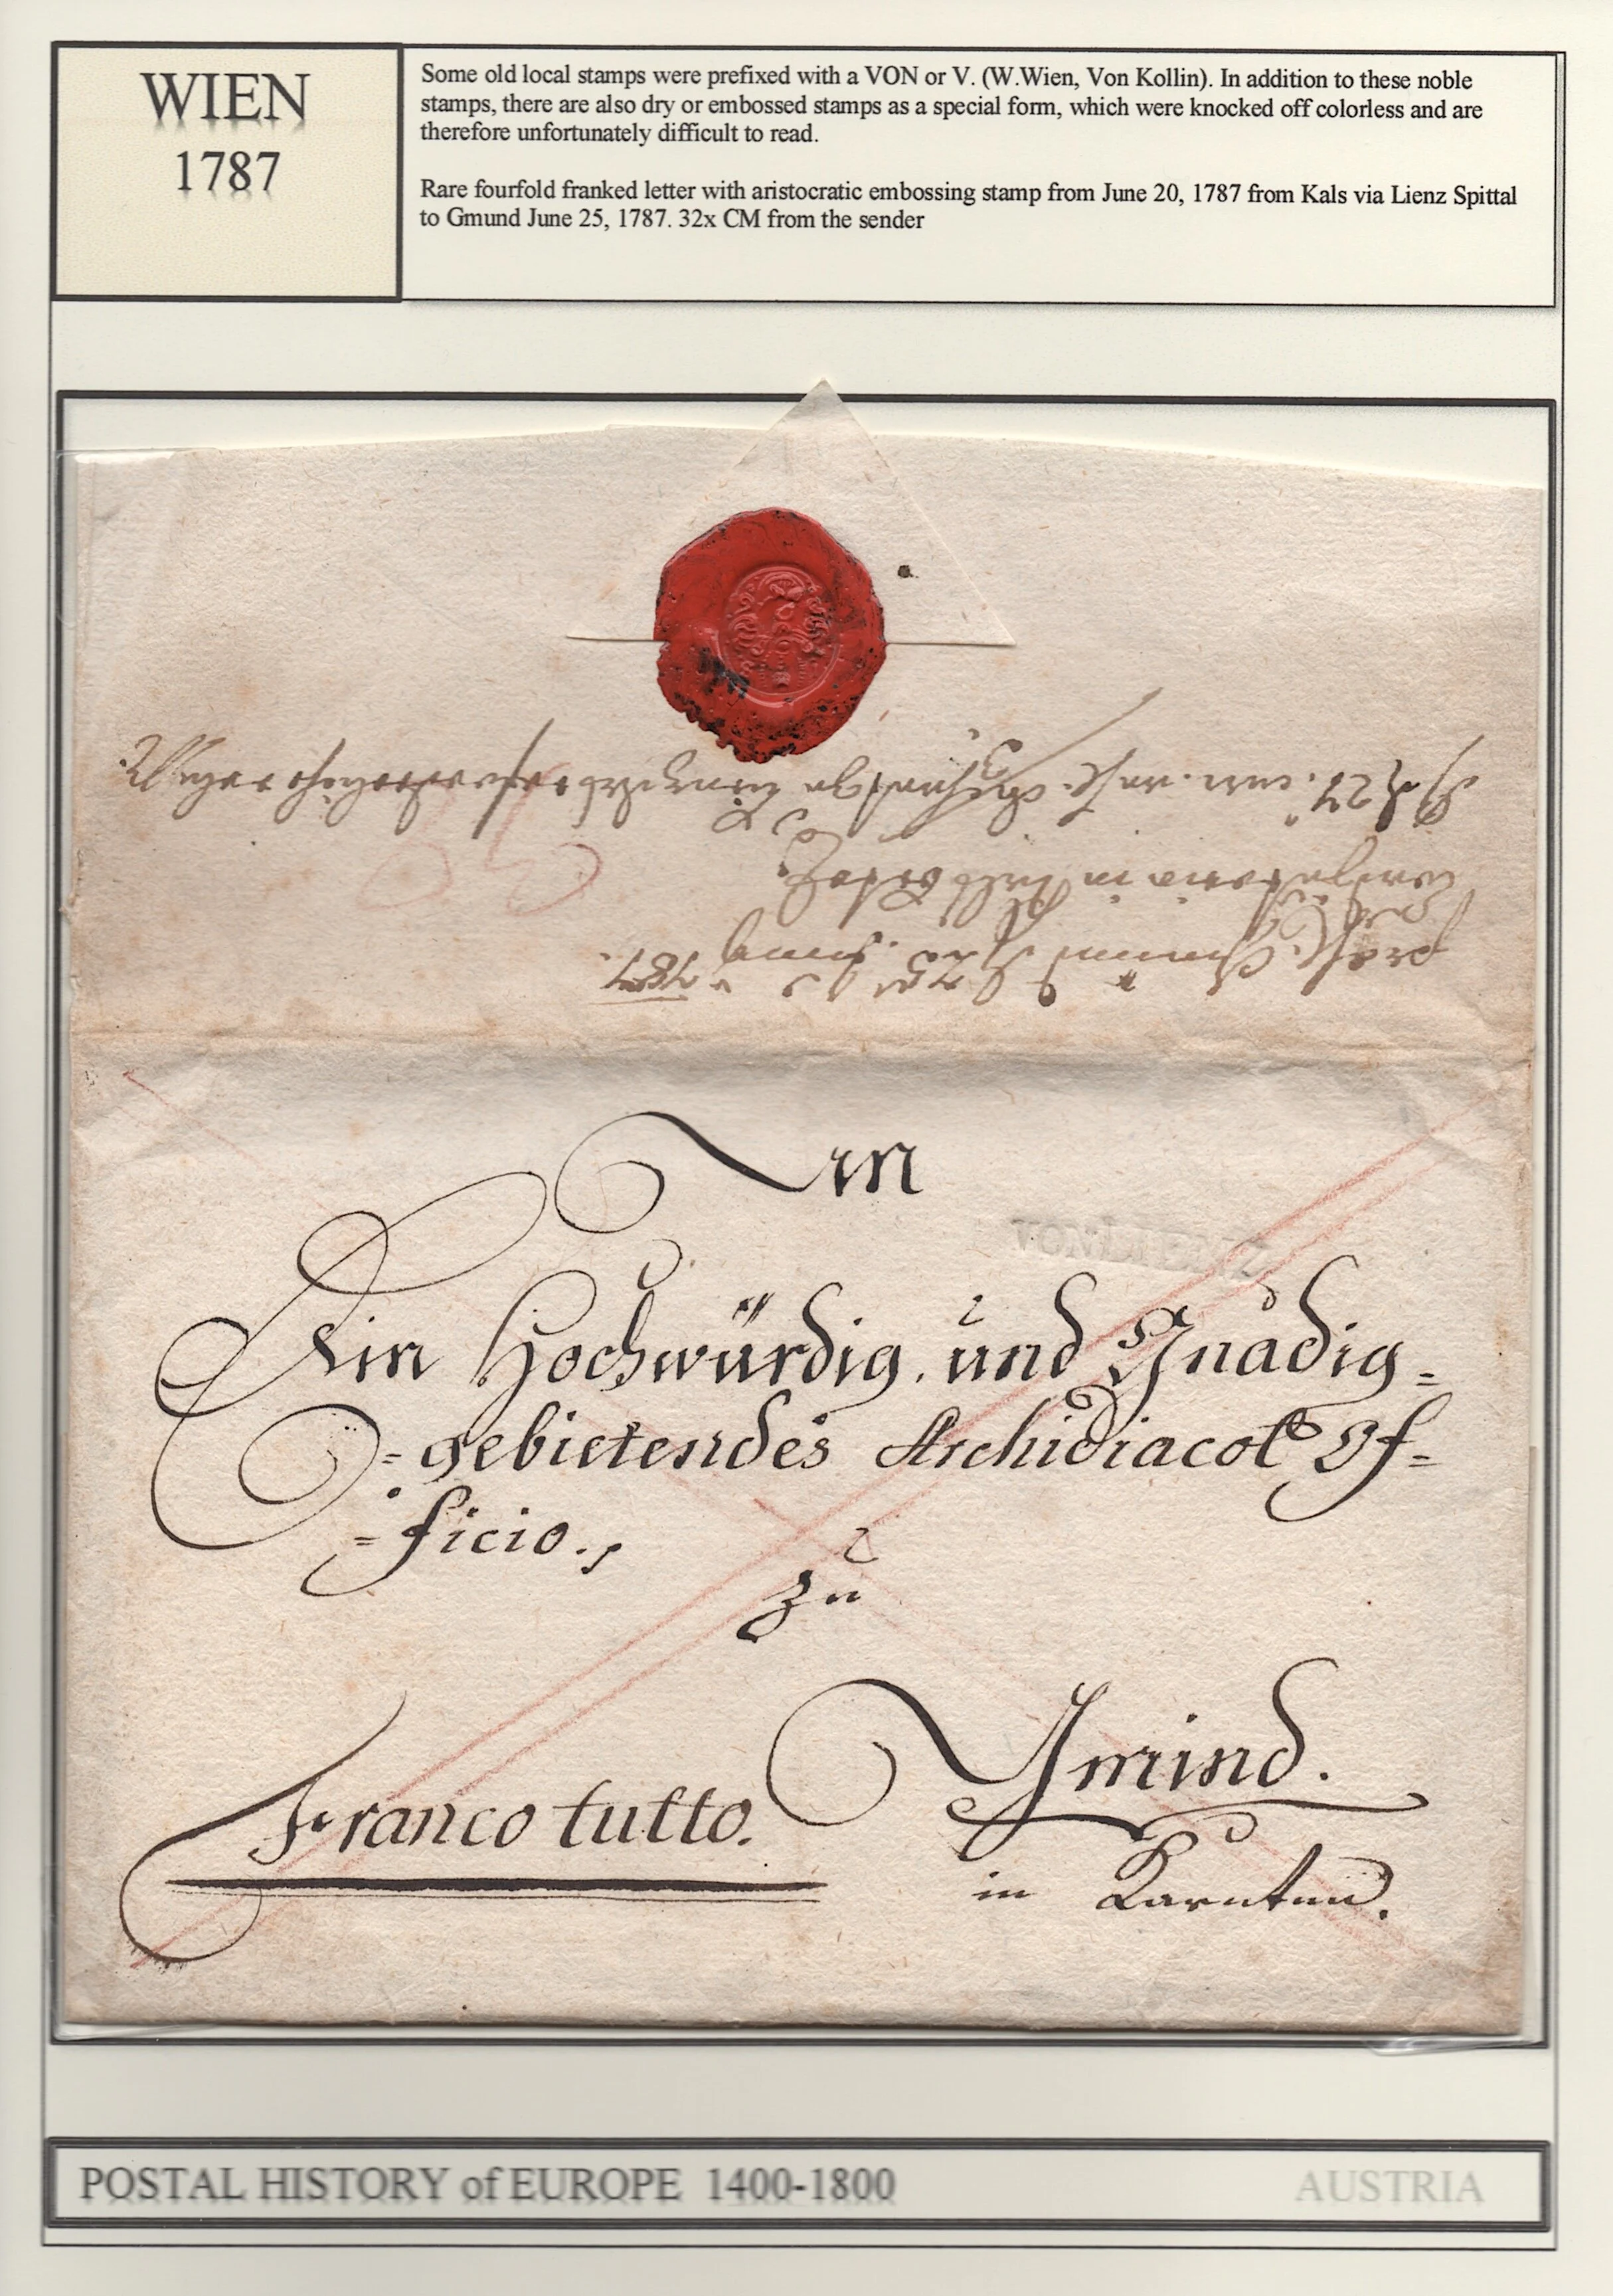 WIEN
1787
Some old local stamps were prefixed with a VON or V. (W.Wien, Von Kollin). In addition to these noble
stamps, there are also dry or embossed stamps as a special form, which were knocked off colorless and are
therefore unfortunately difficult to read.
Rare fourfold franked letter with aristocratic embossing stamp from June 20, 1787 from Kals via Lienz Spittal
to Gmund June 25, 1787. 32x CM from the sender
1787.
An
VON LIENZ
Ein Hochwürdig. und Gnädig=
=gebietendes Archidiacol Of=
=ficio.
zu
Gmind.
Franco tutto.
in Karnten.
POSTAL HISTORY of EUROPE 1400-1800
AUSTRIA